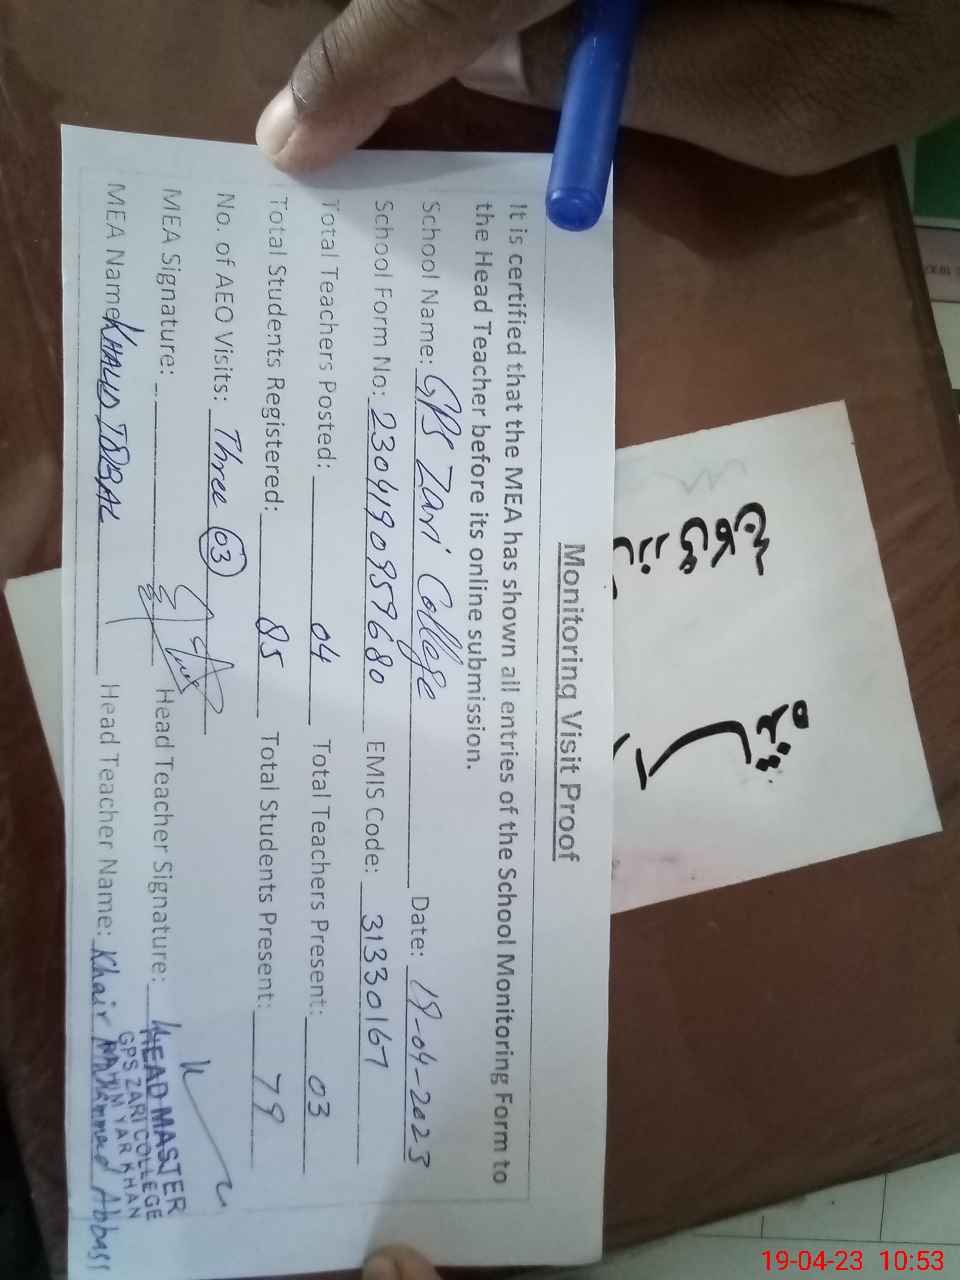 Monitoring Visit Proof
It is certified that the MEA has shown all entries of the School Monitoring Form to
the Head Teacher before its online submission.
School Name: GPS Zari College Date: 19-04-2023
School Form No: 2304190957680 EMIS Code: 31330167
Total Teachers Posted: 04 Total Teachers Present: 03
Total Students Registered: 85 Total Students Present: 79
No. of AEO Visits: Three 03
MEA Signature: Head Teacher Signature:
MEA Name KHALID IQBAL Head Teacher Name: Khair Muhammad Abbass
HEAD MASTER
GPS ZARI COLLEGE
RAHIM YAR KHAN
19-04-23 10:53